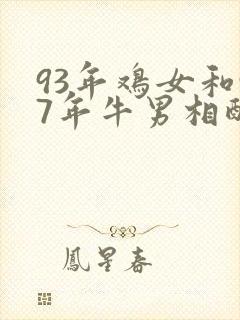 93年鸡女和
7年牛男相
鳳星春